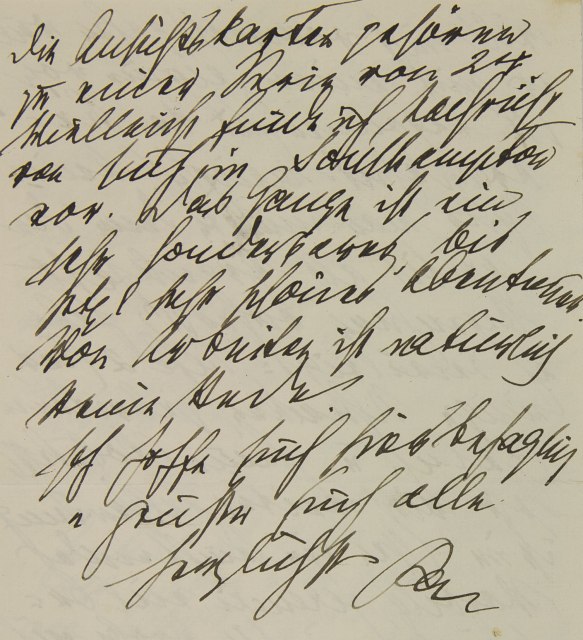 Die Ansichtskarten gehören
zu einer Serie von 24
Vielleicht finde ich Nachricht
von Euch in Southampton
vor. Das Ganze ist ein
sehr sonderbares, bis
jetzt sehr schönes Abenteuer.
Von Arbeiten ist natürlich
keine Rede.
Ich hoffe Euch
u grüße Euch alle
herzlichst